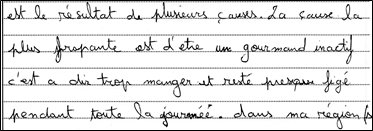 est le résultat de plusieurs causes. La cause la
plus fropante est d'etre un gourmand inactif
c'est a dir trop manger et resté presque figé
pendant toute la journéé. dans ma région